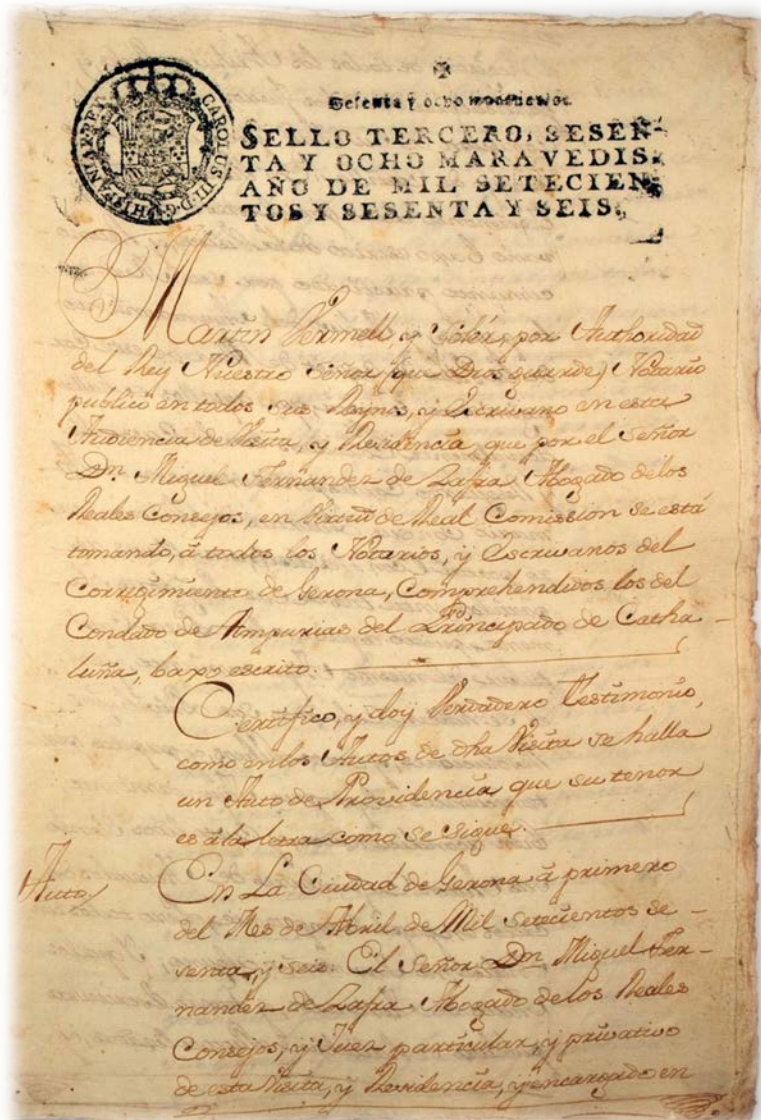 CAROLUS III D. G. HISPANIAR. REX
Sesenta y ocho marauedis.
SELLO TERCERO, SESEN-
TA Y OCHO MARAVEDIS,
AÑO DE MIL SETECIEN-
TOS Y SESENTA Y SEIS.
Martin Vermell, y Solér, por Authoridad
del Rey Nuestro Señor (que Dios guarde) Notario
publico en todos sus Reynos, y Escrivano en esta
Audiencia de Visita, y Residencia que por el Señor
Dn. Miguel Fernandez de Zafra Abogado delos
Reales Consejos, en Virtud de Real Comission se está
tomando, á todos los Notarios, y Escrivanos del
Corregimiento de Gerona, Comprehendidos los del
Condado de Ampurias del Principado de Catha-
luña, baxo escrito.
Certifico, y doy Verdadero Testimonio,
como enlos Autos de dha Visita se halla
un Auto de Providencia que su tenor
es ála letra como se sigue.
Auto/
En La Ciudad de Gerona á primero
del Mes de Abril de Mil setecientos se-
senta, y seis: El Señor Dn. Miguel Fer-
nandez de Zafra Abogado delos Reales
Consejos, y Juez particular, y privativo
de esta Visita, y Residencia, y encargado en